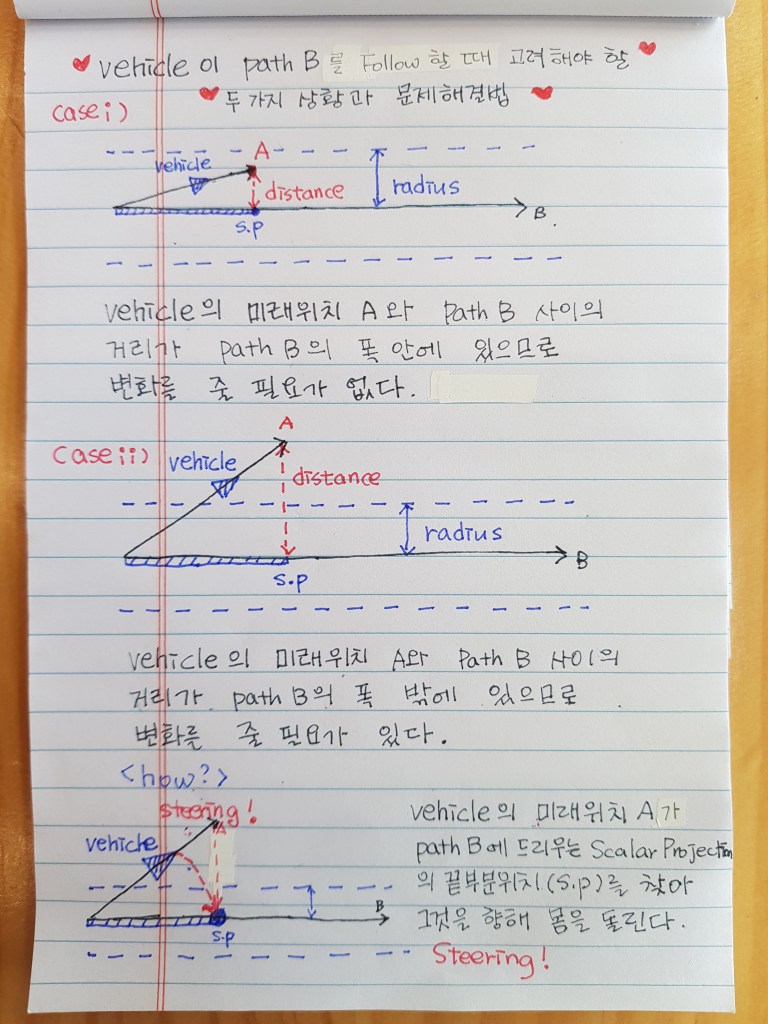 vehicle이 path B를 Follow할 때 고려해야 할
두가지 상황과 문제해결법
case i)
A
vehicle
distance
radius
B
S.P
vehicle의 미래위치 A와 path B 사이의
거리가 path B의 폭 안에 있으므로
변화를 줄 필요가 없다.
A
case ii)
vehicle
distance
radius
B
S.P
vehicle의 미래위치 A와 Path B 사이의
거리가 path B의 폭 밖에 있으므로
변화를 줄 필요가 있다.
<how?>
steering!
A
vehicle
B
S.P
vehicle의 미래위치 A가
path B에 드리우는 Scalar Projection
의 끝부분위치.(S.P)를 찾아
그것을 향해 몸을 돌린다.
Steering!